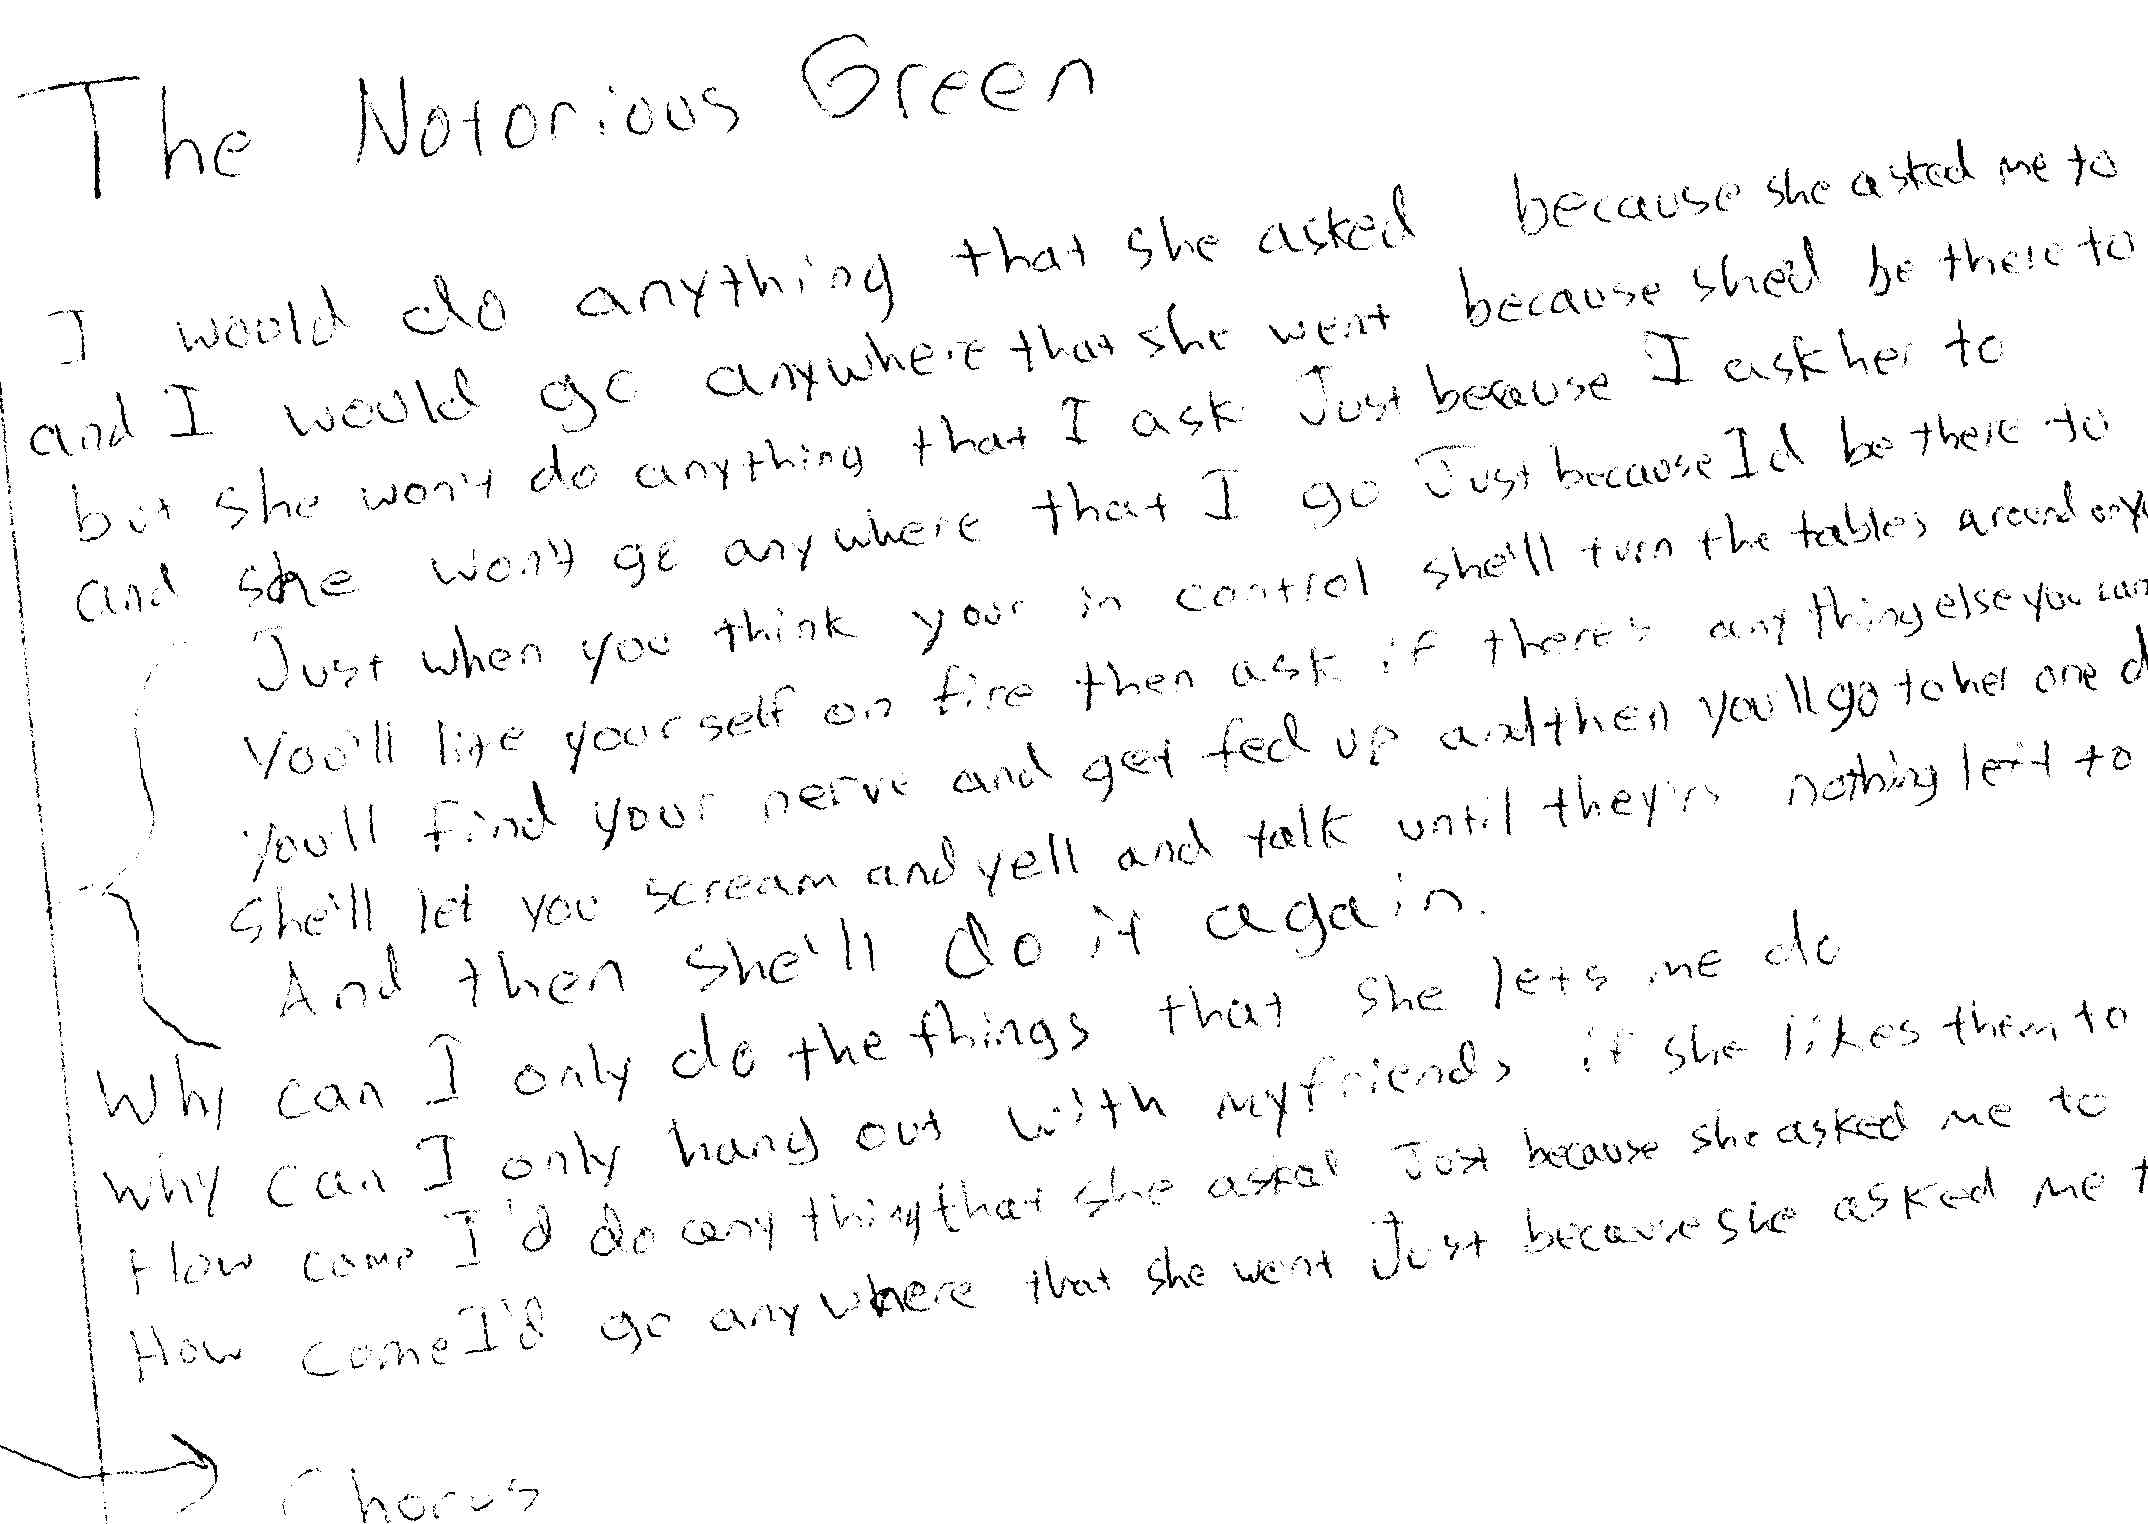 The Notorious Green
I would do anything that she asked because she asked me to
and I would go anywhere that she went because she'd be there to
but she won't do anything that I ask Just because I ask her to
and she won't go anywhere that I go Just because I'd be there to
Just when you think your in control she'll turn the tables around
You'll lite yourself on fire then ask if there's anything else you can
You'll find your nerve and get fed up and then you'll go to her one
She'll let you scream and yell and talk until they'rs nothing left to
And then she'll do it again.
Why can I only do the things that she lets me do
Why can I only hang out with my friends if she likes them to
How come I'd do anything that she asked Just because she asked me to
How come I'd go anywhere that she went Just because she asked me
Chorus